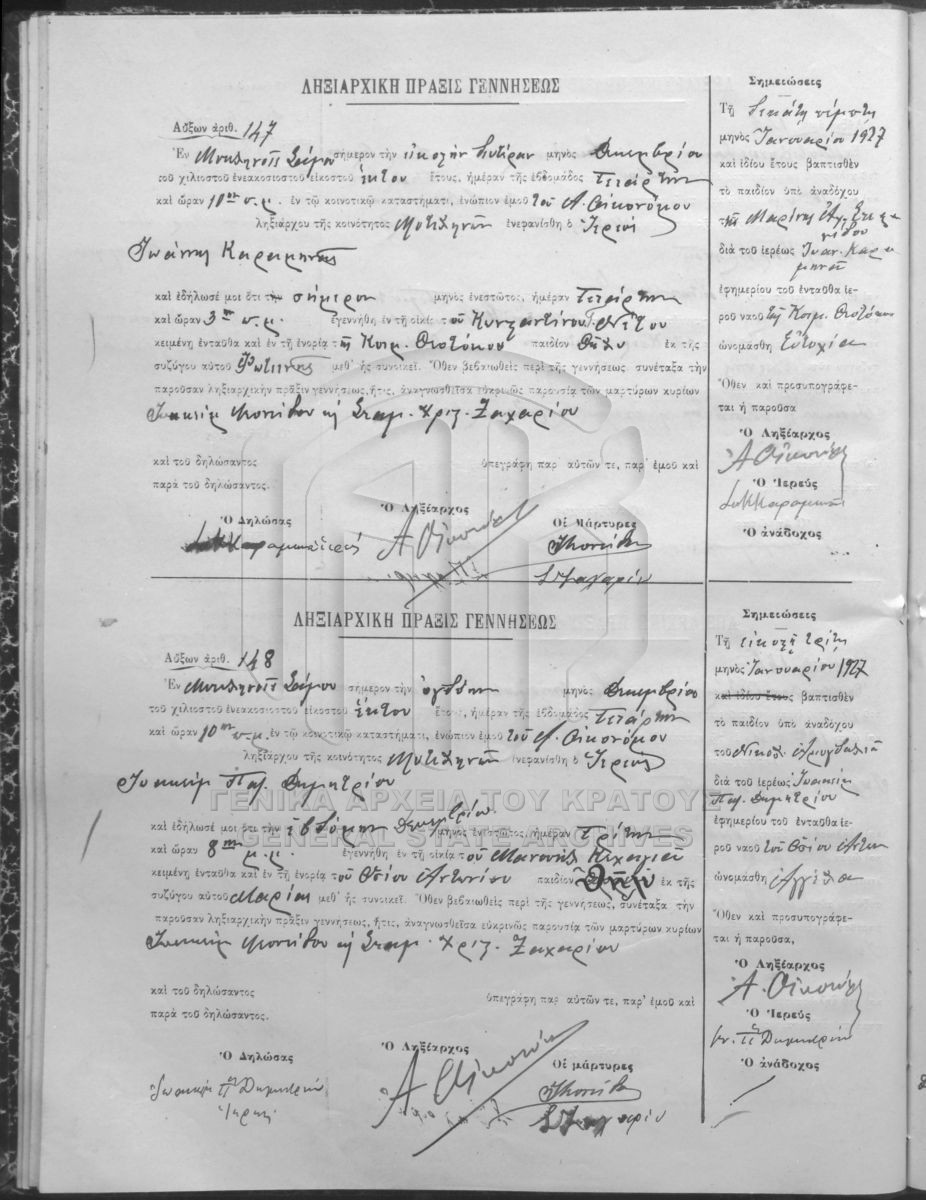 ΛΗΞΙΑΡΧΙΚΗ ΠΡΑΞΙΣ ΓΕΝΝΗΣΕΩΣ
Αὔξων ἀριθ. 147
Ἐν Μυτιληνιοῖς Σάμου σήμερον τὴν μηνὸς Δεκεμβρίου
τοῦ χιλιοστοῦ ἐνεακοσιοστοῦ εἰκοστοῦ ἕκτου ἔτους, ἡμέραν τῆς ἑβδομάδος Τετάρτην
καὶ ὥραν 10ην π.μ. ἐν τῷ κοινοτικῷ καταστήματι, ἐνώπιον ἐμοῦ τοῦ Α. Οἰκονόμου
ληξιάρχου τῆς κοινότητος Μυτιληνιῶν ἐνεφανίσθη ὁ Ἱερεὺς
Ἰωάννης Καραμηνᾶς
καὶ ἐδήλωσέ μοι ὅτι σήμερον μηνὸς ἐνεστῶτος, ἡμέραν Τετάρτην
καὶ ὥραν 3ην π.μ. ἐγεννήθη ἐν τῇ οἰκίᾳ τοῦ Κωνσταντίνου
κειμένῃ ἐνταῦθα καὶ ἐν τῇ ἐνορίᾳ τῆς Κοιμ. Θεοτόκου παιδίον θῆλυ ἐκ τῆς
συζύγου αὐτοῦ Φωτεινῆς μεθ' ἧς συνοικεῖ. Ὅθεν βεβαιωθεὶς περὶ τῆς γεννήσεως συνέταξα τὴν
παροῦσαν ληξιαρχικὴν πρᾶξιν γεννήσεως, ἥτις, ἀναγνωσθεῖσα εὐκρινῶς παρουσίᾳ τῶν μαρτύρων κυρίων
Ἰωακεὶμ καὶ Σταμ. Χριζ. Ζαχαρίου
καὶ τοῦ δηλώσαντος ὑπεγράφη παρ' αὐτῶν τε, παρ' ἐμοῦ καὶ
παρὰ τοῦ δηλώσαντος.
Ὁ Δηλώσας Ὁ Ληξίαρχος Οἱ Μάρτυρες
Α Οἰκονόμου
Σ Ζαχαρίου
Σημειώσεις
Τῇ δεκάτῃ πέμπτῃ
μηνὸς Ἰανουαρίου 1927
καὶ ἰδίου ἔτους βαπτισθὲν
τὸ παιδίον ὑπὸ ἀναδόχου
τῆς Μαρίνης
διὰ τοῦ ἱερέως Ἰωάν. Καρα
μηνᾶ
ἐφημερίου τοῦ ἐνταῦθα ἱε-
ροῦ ναοῦ τῆς Κοιμ. Θεοτόκου
ὠνομάσθη Εὐτυχία
Ὅθεν καὶ προσυπογράφε-
ται ἡ παροῦσα
Ὁ Ληξίαρχος
Α Οἰκονόμου
Ὁ Ἱερεὺς
Ὁ ἀνάδοχος
ΛΗΞΙΑΡΧΙΚΗ ΠΡΑΞΙΣ ΓΕΝΝΗΣΕΩΣ
Αὔξων ἀριθ. 148
Ἐν Μυτιληνιοῖς Σάμου σήμερον τὴν ὀγδόην μηνὸς Δεκεμβρίου
τοῦ χιλιοστοῦ ἐνεακοσιοστοῦ εἰκοστοῦ ἕκτου ἔτους, ἡμέραν τῆς ἑβδομάδος Τετάρτην
καὶ ὥραν 10ην π.μ. ἐν τῷ κοινοτικῷ καταστήματι, ἐνώπιον ἐμοῦ τοῦ Α. Οἰκονόμου
ληξιάρχου τῆς κοινότητος Μυτιληνιῶν ἐνεφανίσθη ὁ Ἱερεὺς
Ἰωακεὶμ Παπ. Δημητρίου
καὶ ἐδήλωσέ μοι ὅτι τὴν ἑβδόμην Δεκεμβρίου μηνὸς ἐνεστῶτος, ἡμέραν Τρίτην
καὶ ὥραν 8ην μ.μ. ἐγεννήθη ἐν τῇ οἰκίᾳ τοῦ Μανουὴλ Κεχαγιᾶ
κειμένῃ ἐνταῦθα καὶ ἐν τῇ ἐνορίᾳ τοῦ Ὁσίου Ἀντωνίου παιδίον θῆλυ ἐκ τῆς
συζύγου αὐτοῦ Μαρίας μεθ' ἧς συνοικεῖ. Ὅθεν βεβαιωθεὶς περὶ τῆς γεννήσεως, συνέταξα τὴν
παροῦσαν ληξιαρχικὴν πρᾶξιν γεννήσεως, ἥτις, ἀναγνωσθεῖσα εὐκρινῶς παρουσίᾳ τῶν μαρτύρων κυρίων
Ἰωακεὶμ καὶ Σταμ. Χριζ. Ζαχαρίου
καὶ τοῦ δηλώσαντος ὑπεγράφη παρ' αὐτῶν τε, παρ' ἐμοῦ καὶ
παρὰ τοῦ δηλώσαντος.
Ὁ Δηλώσας Ὁ Ληξίαρχος Οἱ μάρτυρες
Α Οἰκονόμου
Σ Ζαχαρίου
Σημειώσεις
Τῇ εἰκοστῇ τρίτῃ
μηνὸς Ἰανουαρίου 1927
καὶ ἰδίου ἔτους βαπτισθὲν
τὸ παιδίον ὑπὸ ἀναδόχου
τοῦ Νικολ.
διὰ τοῦ ἱερέως Ἰωακεὶμ
Παπ. Δημητρίου
ἐφημερίου τοῦ ἐνταῦθα ἱε-
ροῦ ναοῦ τοῦ Ὁσίου Ἀντων
ὠνομάσθη
Ὅθεν καὶ προσυπογράφε-
ται ἡ παροῦσα,
Ὁ Ληξίαρχος
Α. Οἰκονόμου
Ὁ Ἱερεὺς
Ὁ ἀνάδοχος
ΓΕΝΙΚΑ ΑΡΧΕΙΑ ΤΟΥ ΚΡΑΤΟΥΣ
GENERAL STATE ARCHIVES